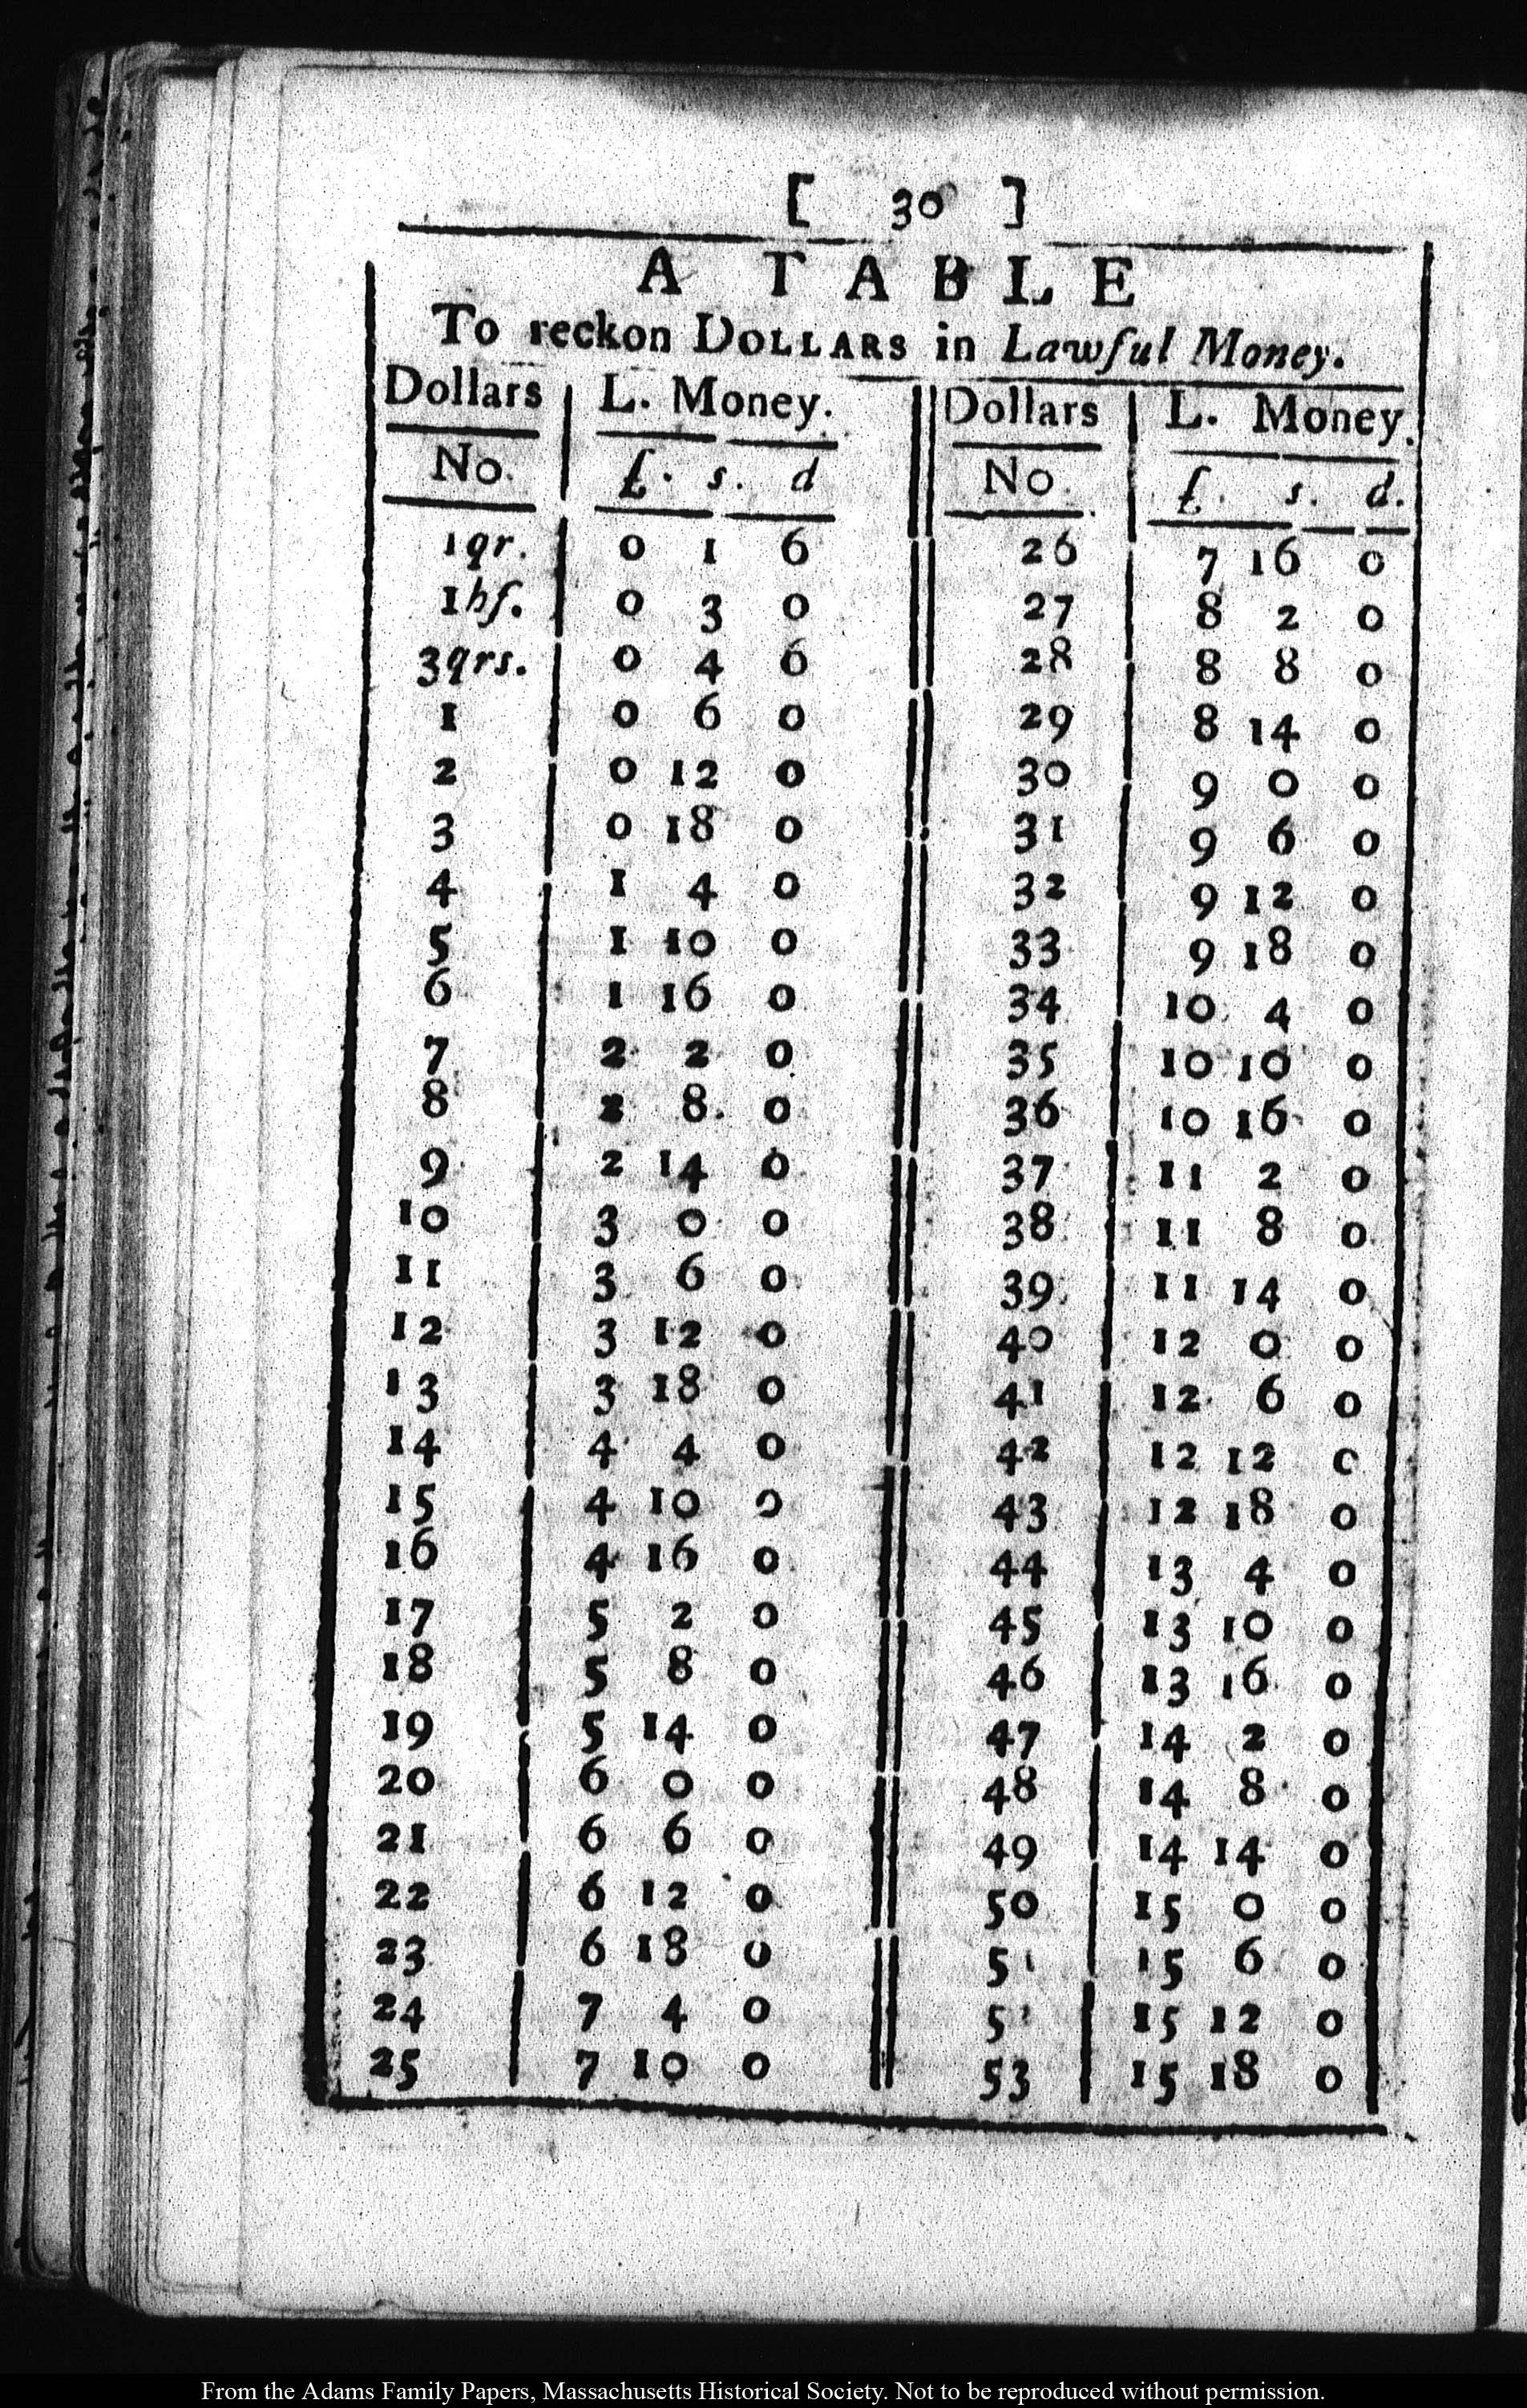 [ 30 ]
A TABLE
To reckon DOLLARS in Lawſul Money.
Dollars L. Money. Dollars L. Money.
No. £. s. d No. £. s. d.
1qr. 0 1 6 26 7 16 0
1hſ. 0 3 0 27 8 2 0
3qrs. 0 4 6 28 8 8 0
1 0 6 0 29 8 14 0
2 0 12 0 30 9 0 0
3 0 18 0 31 9 6 0
4 1 4 0 32 9 12 0
5 1 10 0 33 9 18 0
6 1 16 0 34 10 4 0
7 2 2 0 35 10 10 0
8 2 8 0 36 10 16 0
9 2 14 0 37 11 2 0
10 3 0 0 38 11 8 0
11 3 6 0 39 11 14 0
12 3 12 0 40 12 0 0
13 3 18 0 41 12 6 0
14 4 4 0 42 12 12 0
15 4 10 0 43 12 18 0
16 4 16 0 44 13 4 0
17 5 2 0 45 13 10 0
18 5 8 0 46 13 16 0
19 5 14 0 47 14 2 0
20 6 0 0 48 14 8 0
21 6 6 0 49 14 14 0
22 6 12 0 50 15 0 0
23 6 18 0 51 15 6 0
24 7 4 0 52 15 12 0
25 7 10 0 53 15 18 0
From the Adams Family Papers, Massachusetts Historical Society. Not to be reproduced without permission.